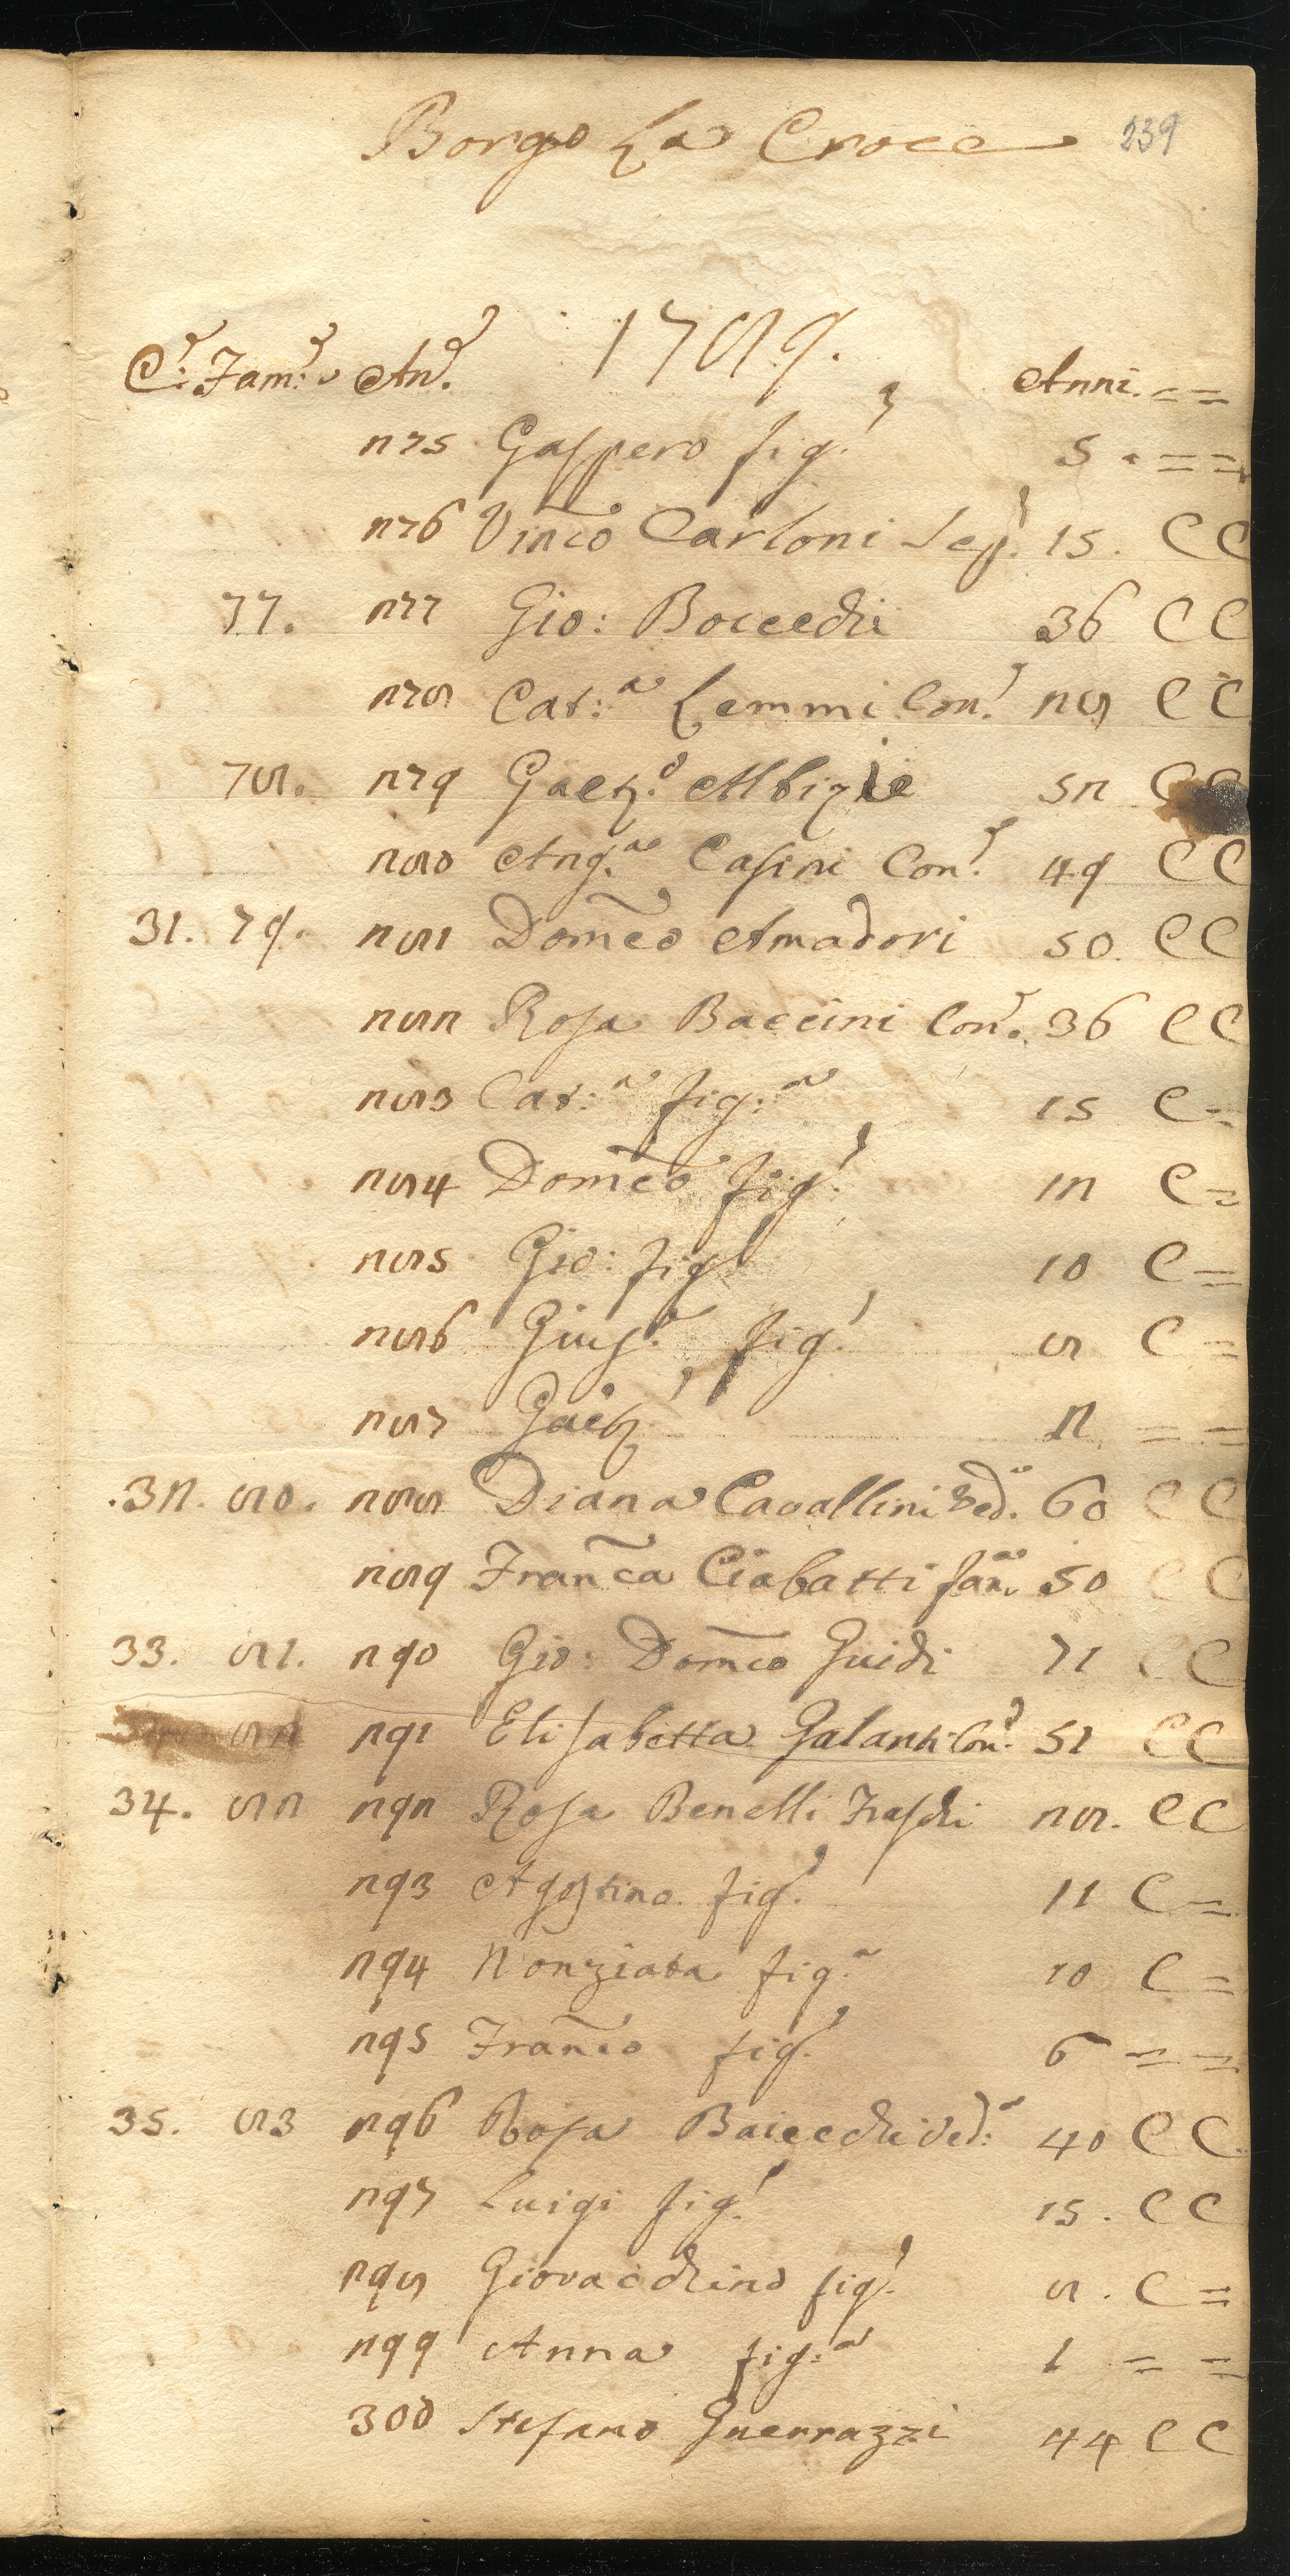 Borgo La Croce 239
1789.
C.e Fam.e An.e Anni. = =
275 Gaspero fig.o 5 . = =
276 Vinco Carloni 15. C C
77. 277 Gio: Boccechi 36 C C
278 Cat:a Lemmi Con.e 28 C C
78. 279 Gaet.o Albizie 52 C C
280 Ang.a Casini Con.e 49 C C
31. 79. 281 Domco Amadori 50. C C
282 Rosa Baccini Con.e 36 C C
283 Cat:a fig:a 15 C =
284 Domco fig.o 12 C =
285 Gio: fig.o 10 C =
286 Gius.e fig.o 8 C =
287 Gaet.o 2 = =
.32. 80. 288 Diana Cavallini Ved.a 60 C C
289 Franca Ciabatti 50 C C
33. 81. 290 Gio: Domco Guidi 71 C C
34. 82 291 Elisabetta Galanti Con.e 51 C C
34. 82 292 Rosa Benelli Fraschi 28. C C
293 Agostino fig.o 11 C =
294 Nonziata fig.a 10 C =
295 Franco fig.o 6 = =
35. 83 296 Rosa Baicechi Ved:a 40 C C
297 Luigi fig.o 15. C C
298 Giovacchino fig.o 8. C =
299 Anna fig:a 1 = =
300 Stefano Guerrazzi 44 C C